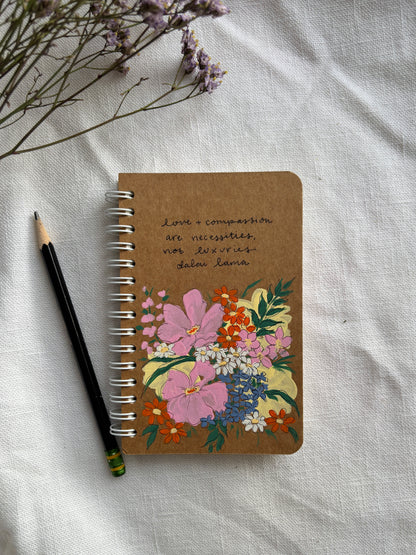 love + compassion
are necessities,
not luxuries
dalai lama